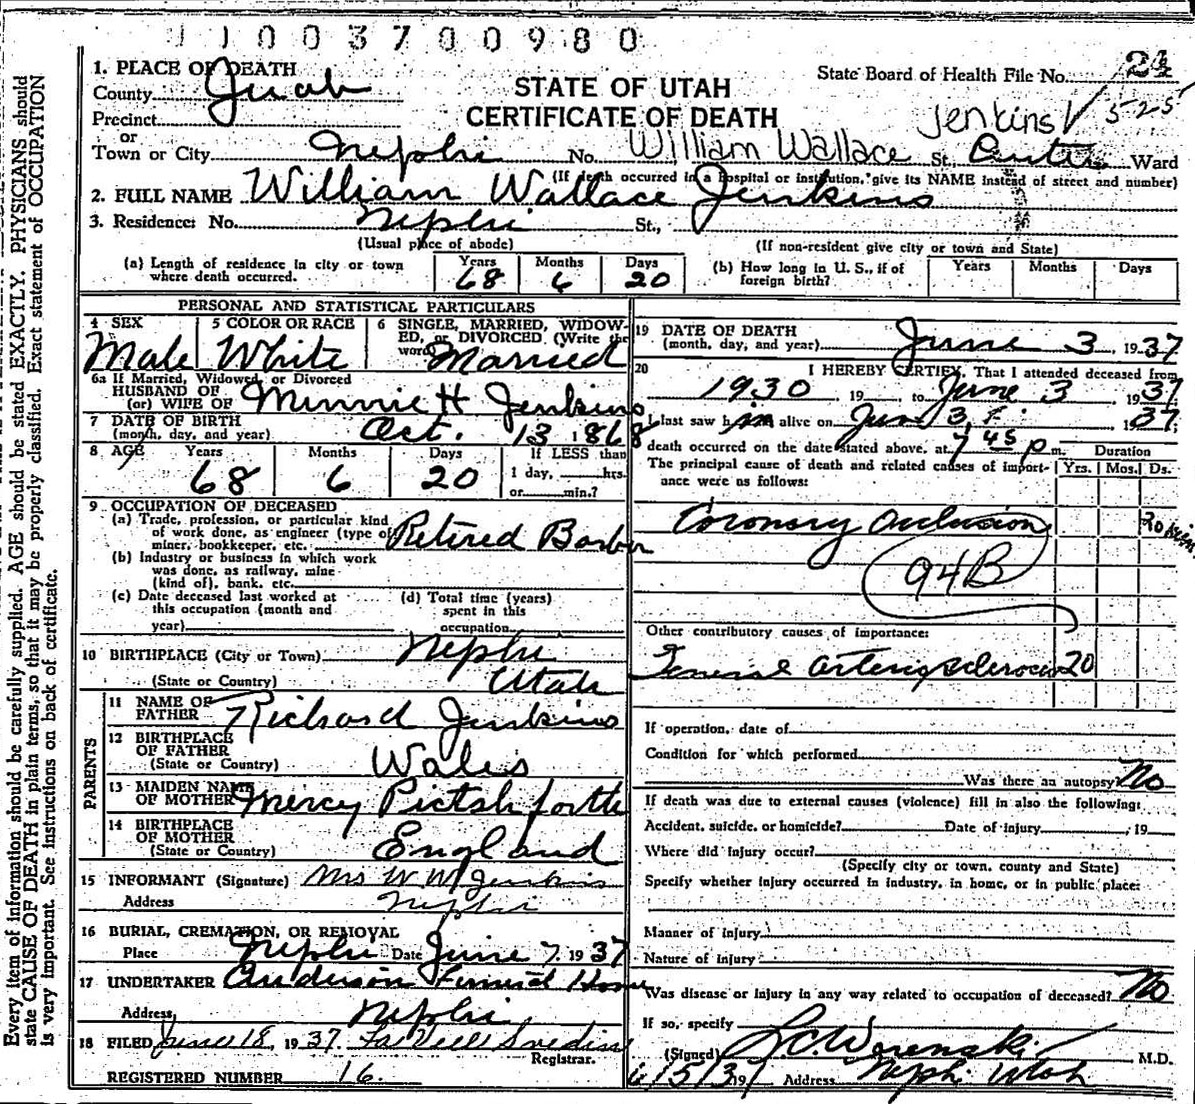 1100370 0980
1. PLACE OF DEATH
County Juab
STATE OF UTAH
CERTIFICATE OF DEATH
State Board of Health File No.
Precinct
Jenkins 525
or
Town or City Nephi No. William Wallace St. Ward
(If death occurred in a hospital or institution, give its NAME instead of street and number)
2. FULL NAME William Wallace Jenkins
3. Residence: No. Nephi St.,
(Usual place of abode) (If non-resident give city or town and State)
(a) Length of residence in city or town where death occurred. Years 68 Months 6 Days 20
(b) How long in U. S., if of foreign birth? Years Months Days
PERSONAL AND STATISTICAL PARTICULARS
4 SEX Male
5 COLOR OR RACE White
6 SINGLE, MARRIED, WIDOWED, or DIVORCED (Write the word) Married
6a If Married, Widowed, or Divorced
HUSBAND OF
(or) WIFE OF Minnie H Jenkins
7 DATE OF BIRTH
(month, day, and year) Oct. 13 1868
8 AGE Years 68 Months 6 Days 20
If LESS than
1 day, hrs.
or min.?
9 OCCUPATION OF DECEASED
(a) Trade, profession, or particular kind of work done, as engineer (type of miner, bookkeeper, etc. Retired Barber
(b) Industry or business in which work was done, as railway, mine (kind of), bank, etc.
(c) Date deceased last worked at this occupation (month and year)
(d) Total time (years) spent in this occupation
10 BIRTHPLACE (City or Town) Nephi
(State or Country) Utah
PARENTS
11 NAME OF FATHER Richard Jenkins
12 BIRTHPLACE OF FATHER
(State or Country) Wales
13 MAIDEN NAME OF MOTHER Mercy
14 BIRTHPLACE OF MOTHER
(State or Country) England
15 INFORMANT (Signature) Mrs W W Jenkins
Address Nephi
16 BURIAL, CREMATION, OR REMOVAL
Place Nephi Date June 7, 1937
17 UNDERTAKER Anderson Funeral Home
Address, Nephi
18 FILED June 18, 1937.
Registrar.
REGISTERED NUMBER 16.
19 DATE OF DEATH
(month, day, and year) June 3, 1937
20 I HEREBY CERTIFY, That I attended deceased from
1930 19 to June 3 1937
I last saw him alive on June 3, 1937;
death occurred on the date stated above, at 7 45 p m.
Duration
The principal cause of death and related causes of importance were as follows: Yrs. Mos. Ds.
Coronary Occlusion 20 min
94B
Other contributory causes of importance:
General arteriosclerosis 20
If operation, date of
Condition for which performed
Was there an autopsy? No
If death was due to external causes (violence) fill in also the following:
Accident, suicide, or homicide? Date of injury , 19
Where did injury occur?
(Specify city or town, county and State)
Specify whether injury occurred in industry, in home, or in public place:
Manner of injury
Nature of injury
Was disease or injury in any way related to occupation of deceased? No
If so, specify
(Signed) M.D.
6/5/37 19 Address Nephi Utah
Every item of information should be carefully supplied. AGE should be stated EXACTLY. PHYSICIANS should
state CAUSE OF DEATH in plain terms, so that it may be properly classified. Exact statement of OCCUPATION
is very important. See instructions on back of certificate.